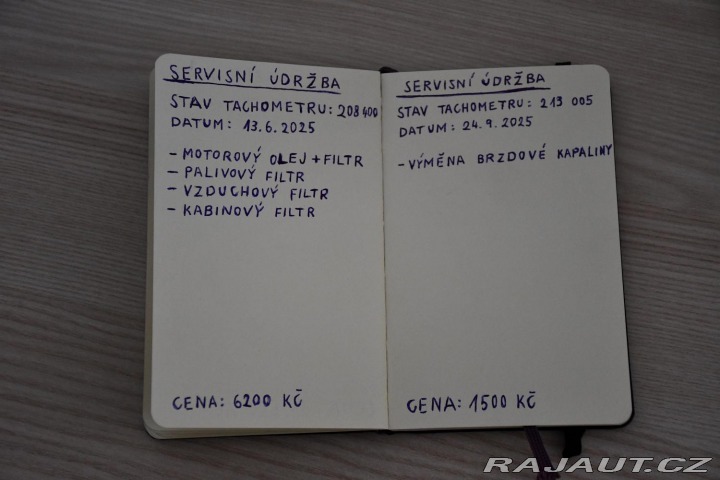 SERVISNÍ ÚDRŽBA
STAV TACHOMETRU: 208 400
DATUM: 13.6.2025
- MOTOROVÝ OLEJ + FILTR
- PALIVOVÝ FILTR
- VZDUCHOVÝ FILTR
- KABINOVÝ FILTR
CENA: 6200 KČ
SERVISNÍ ÚDRŽBA
STAV TACHOMETRU: 213 005
DATUM: 24.9.2025
- VÝMĚNA BRZDOVÉ KAPALINY
CENA: 1500 KČ
RAJAUT.CZ